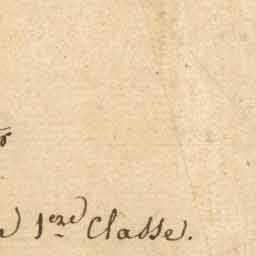 1ere Classe.